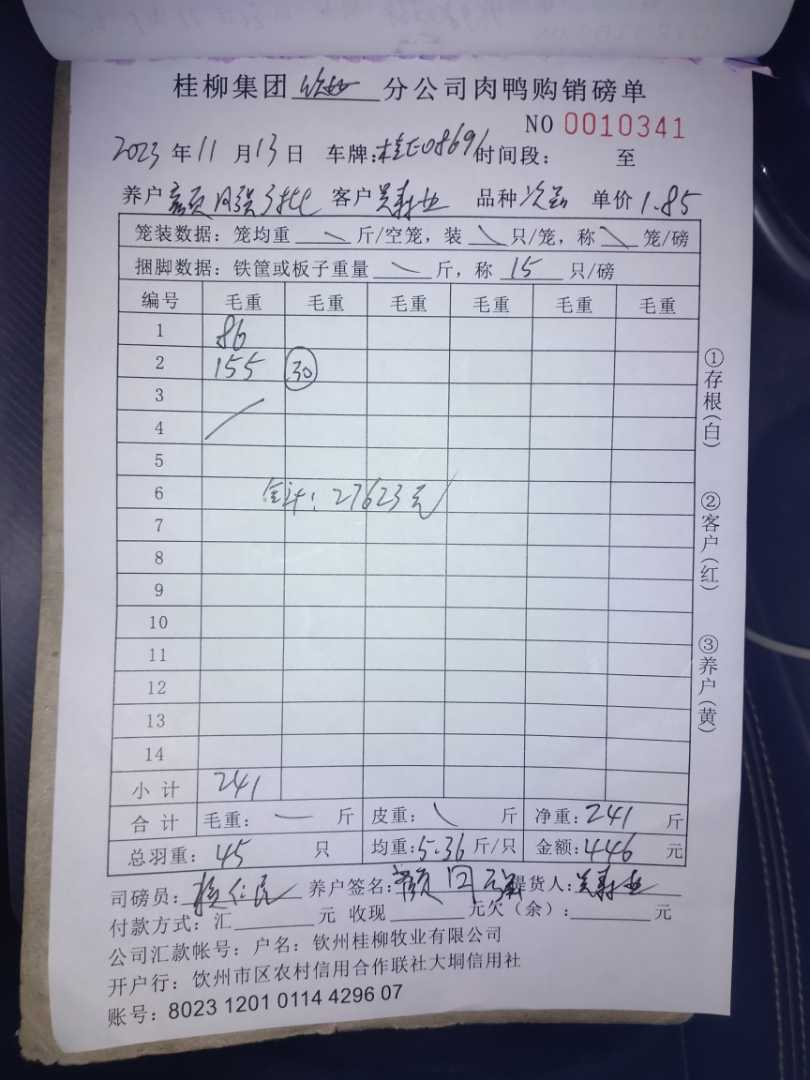 桂柳集团 钦州 分公司肉鸭购销磅单
NO 0010341
2023 年 11 月 13 日 车牌: 桂E08691 时间段: 至
养户 客户 吴寿业 品种 次品 单价 1.85
笼装数据: 笼均重 斤/空笼, 装 只/笼, 称 笼/磅
捆脚数据: 铁筐或板子重量 斤, 称 15 只/磅
编号 毛重 毛重 毛重 毛重 毛重 毛重
1 86
2 155 30
3
4
5
6 合计: 27623元
7
8
9
10
11
12
13
14
小计 241
合计 毛重: 斤 皮重: 斤 净重: 241 斤
总羽重: 45 只 均重: 5.36 斤/只 金额: 446 元
司磅员: 养户签名: 提货人: 吴寿业
付款方式: 汇 元 收现 元欠(余): 元
公司汇款帐号: 户名: 钦州桂柳牧业有限公司
开户行: 钦州市区农村信用合作联社大垌信用社
账号: 8023 1201 0114 4296 07
①存根(白)
②客户(红)
③养户(黄)